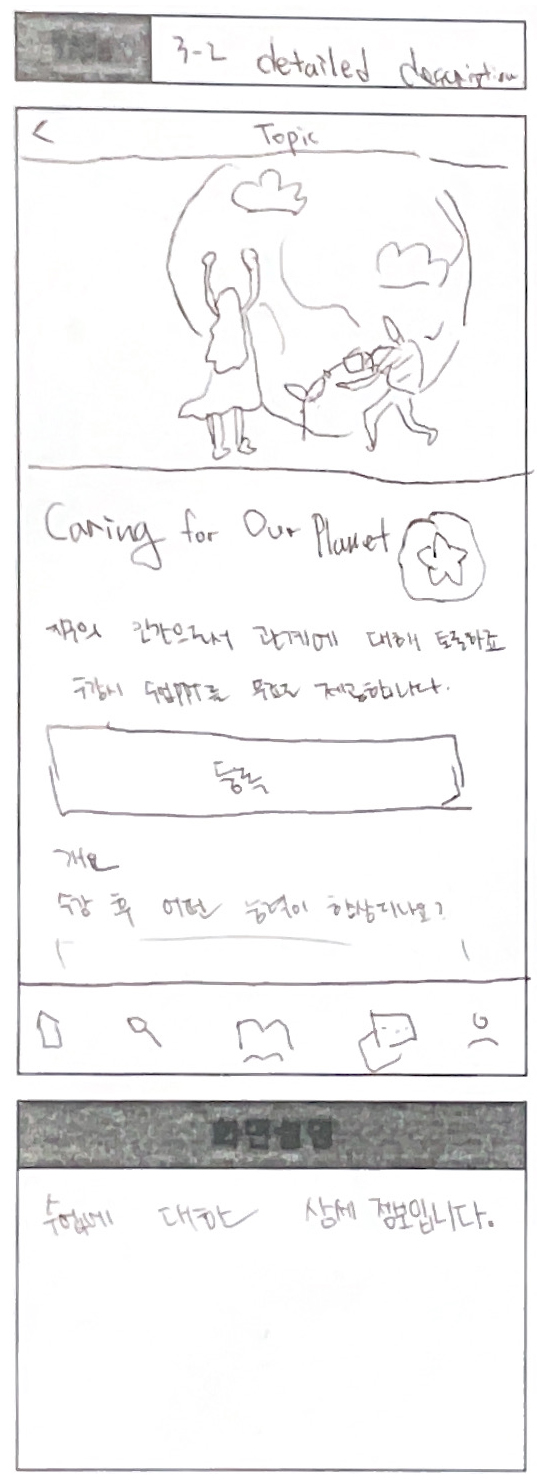 3-2 detailed description
Topic
Caring for Our Planet
지구의 인간으로서 관계에 대해 토론하죠
수강시 수업PPT를 무료로 제공합니다.
등록
개요
수강 후 어떤 능력이 향상되나요?
화면설명
수업에 대한 상세 정보입니다.